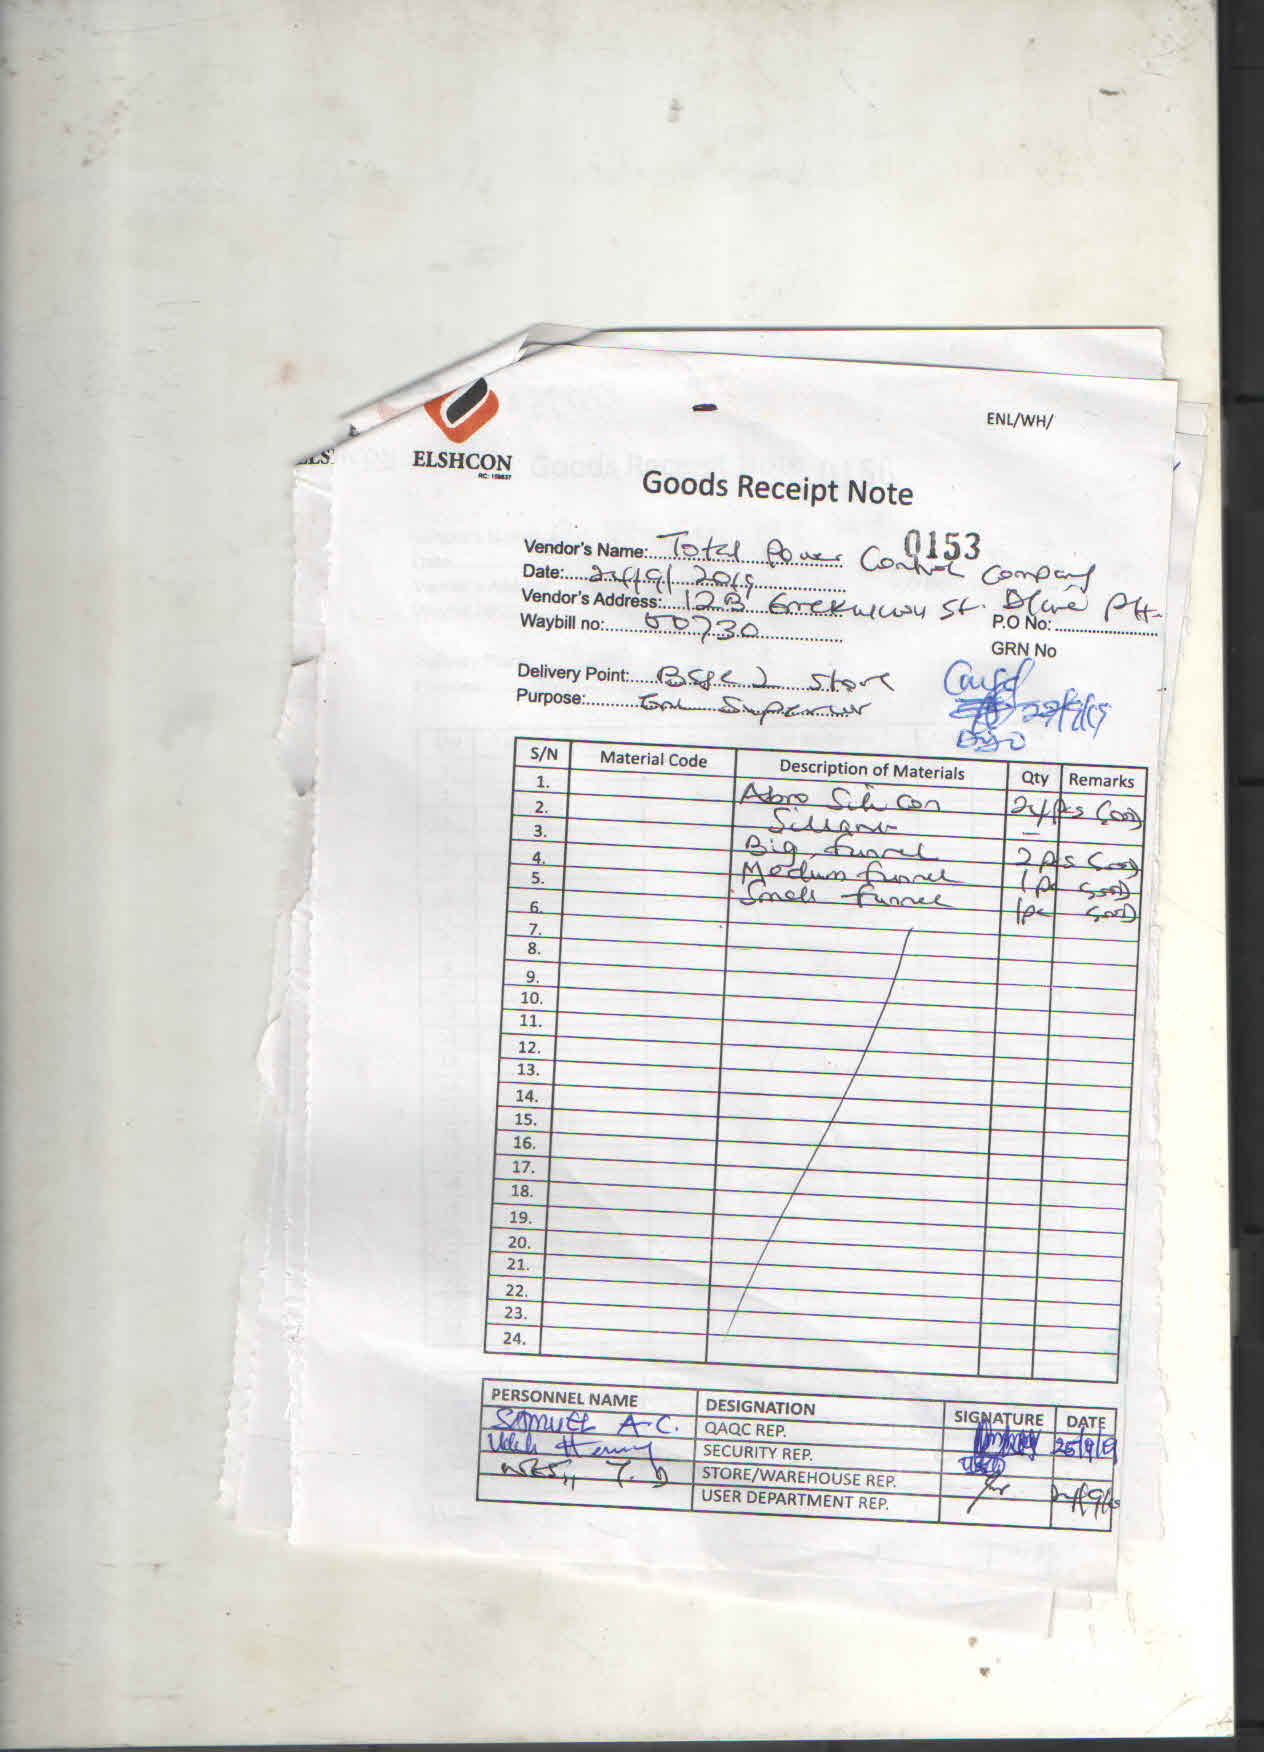 ELSHCON
RC: 159837
ENL/WH/
Goods Receipt Note
0153
Vendor's Name: Total Power Control Company
Date: 24/9/2019
Vendor's Address: 12B St. PH.
Waybill no: 00730
P.O No:
GRN No
Delivery Point: Store
Purpose:
S/N Material Code Description of Materials Qty Remarks
1. Abro Silicon 24pcs Good
2.
3. Big funnel 2pcs Good
4. Medium funnel 1pc Good
5. Small funnel 1pc Good
6.
7.
8.
9.
10.
11.
12.
13.
14.
15.
16.
17.
18.
19.
20.
21.
22.
23.
24.
PERSONNEL NAME DESIGNATION SIGNATURE DATE
SAMUEL A.C. QAQC REP. 25/9/19
Henry SECURITY REP.
STORE/WAREHOUSE REP. 24/9/19
USER DEPARTMENT REP.